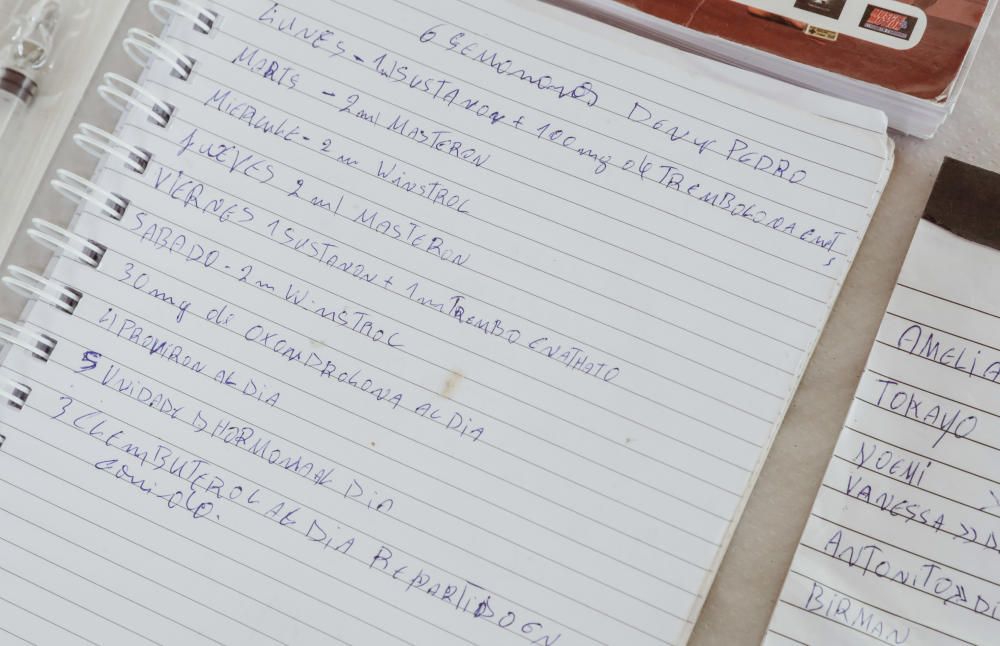 6 SEMANAS DENY PEDRO
LUNES - 1 SUSTANON + 100 mg de TREMBOLONA ENAT,
MARTS - 2 ml MASTERON
MIERCULE - 2 m WINSTROL
JUEVES 2 ml MASTERON
VIERNES 1 SUSTANON + 1 m TREMBO ENATHATO
SABADO - 2 m WINSTROL
30 mg di OXONDROLONA AL DIA
4 PROVIRON AL DIA
5 UNIDADE D HORMONA AL DIA
3 CLEMBUTEROL AL DIA REPARTIDO EN
AMELIA
TOKAYO
NOEMI >
VANESSA >> D
ANTONITO >> DI
BIRMAN